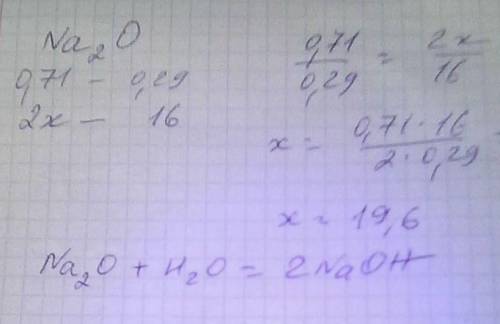 Na₂O
0,71 – 0,29
2x – 16
0,71/0,29 = 2x/16
x = 0,71·16/2·0,29
x = 19,6
Na₂O + H₂O = 2NaOH